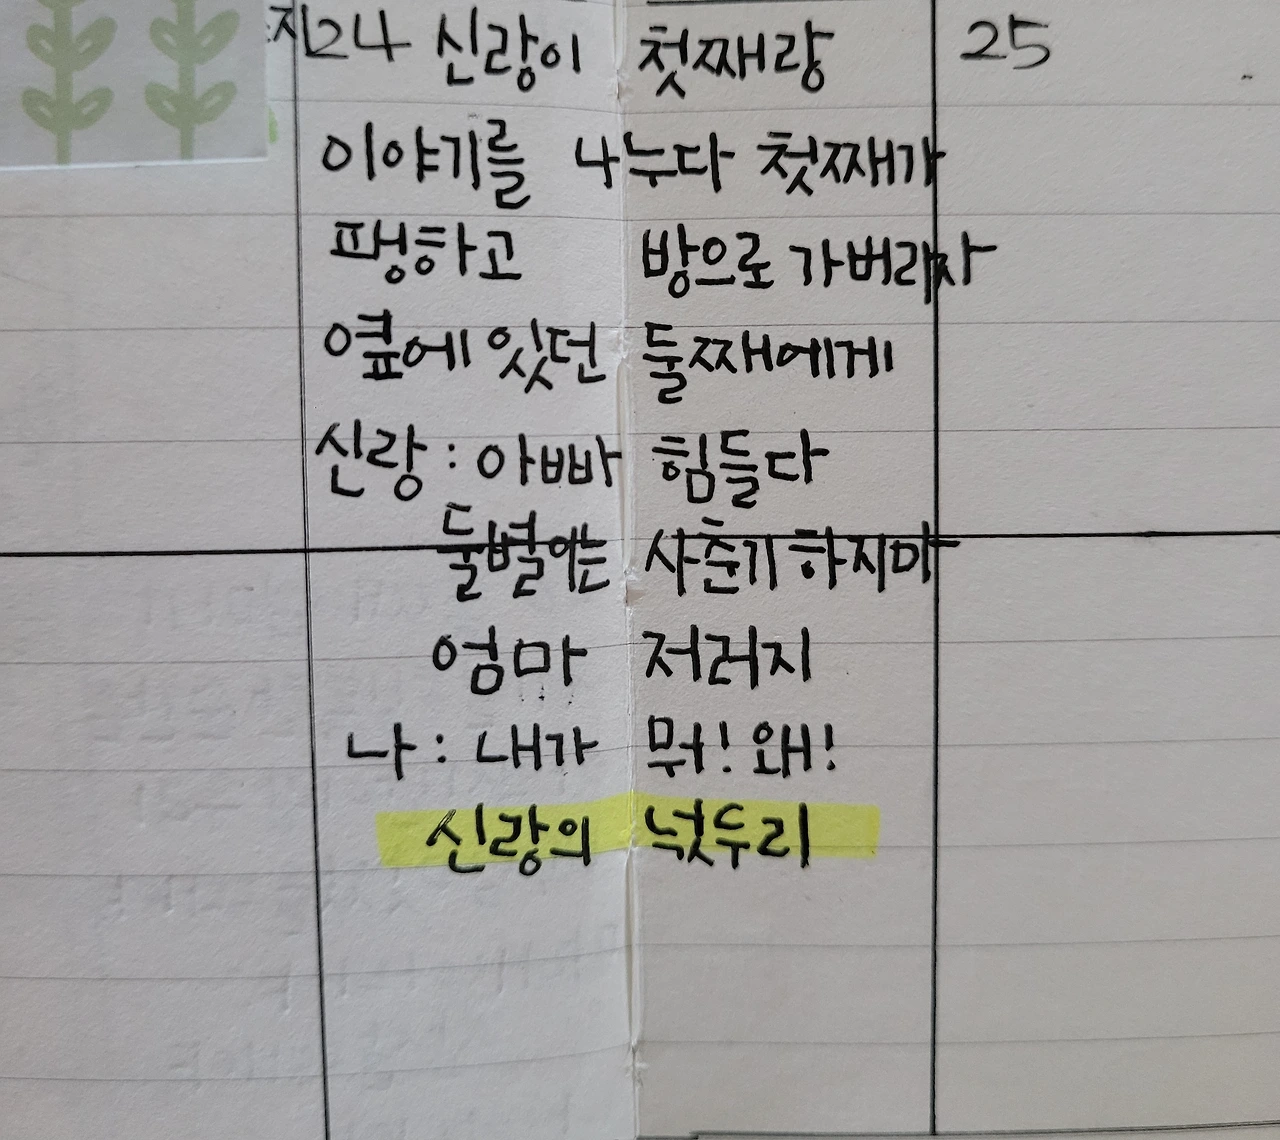 24 신랑이 첫째랑 25
이야기를 나누다 첫째가
팽하고 방으로 가버리자
옆에 있던 둘째에게
신랑 : 아빠 힘들다
둘별이는 사춘기 하지마
엄마 저러지
나 : 내가 뭐! 왜!
신랑의 넋두리